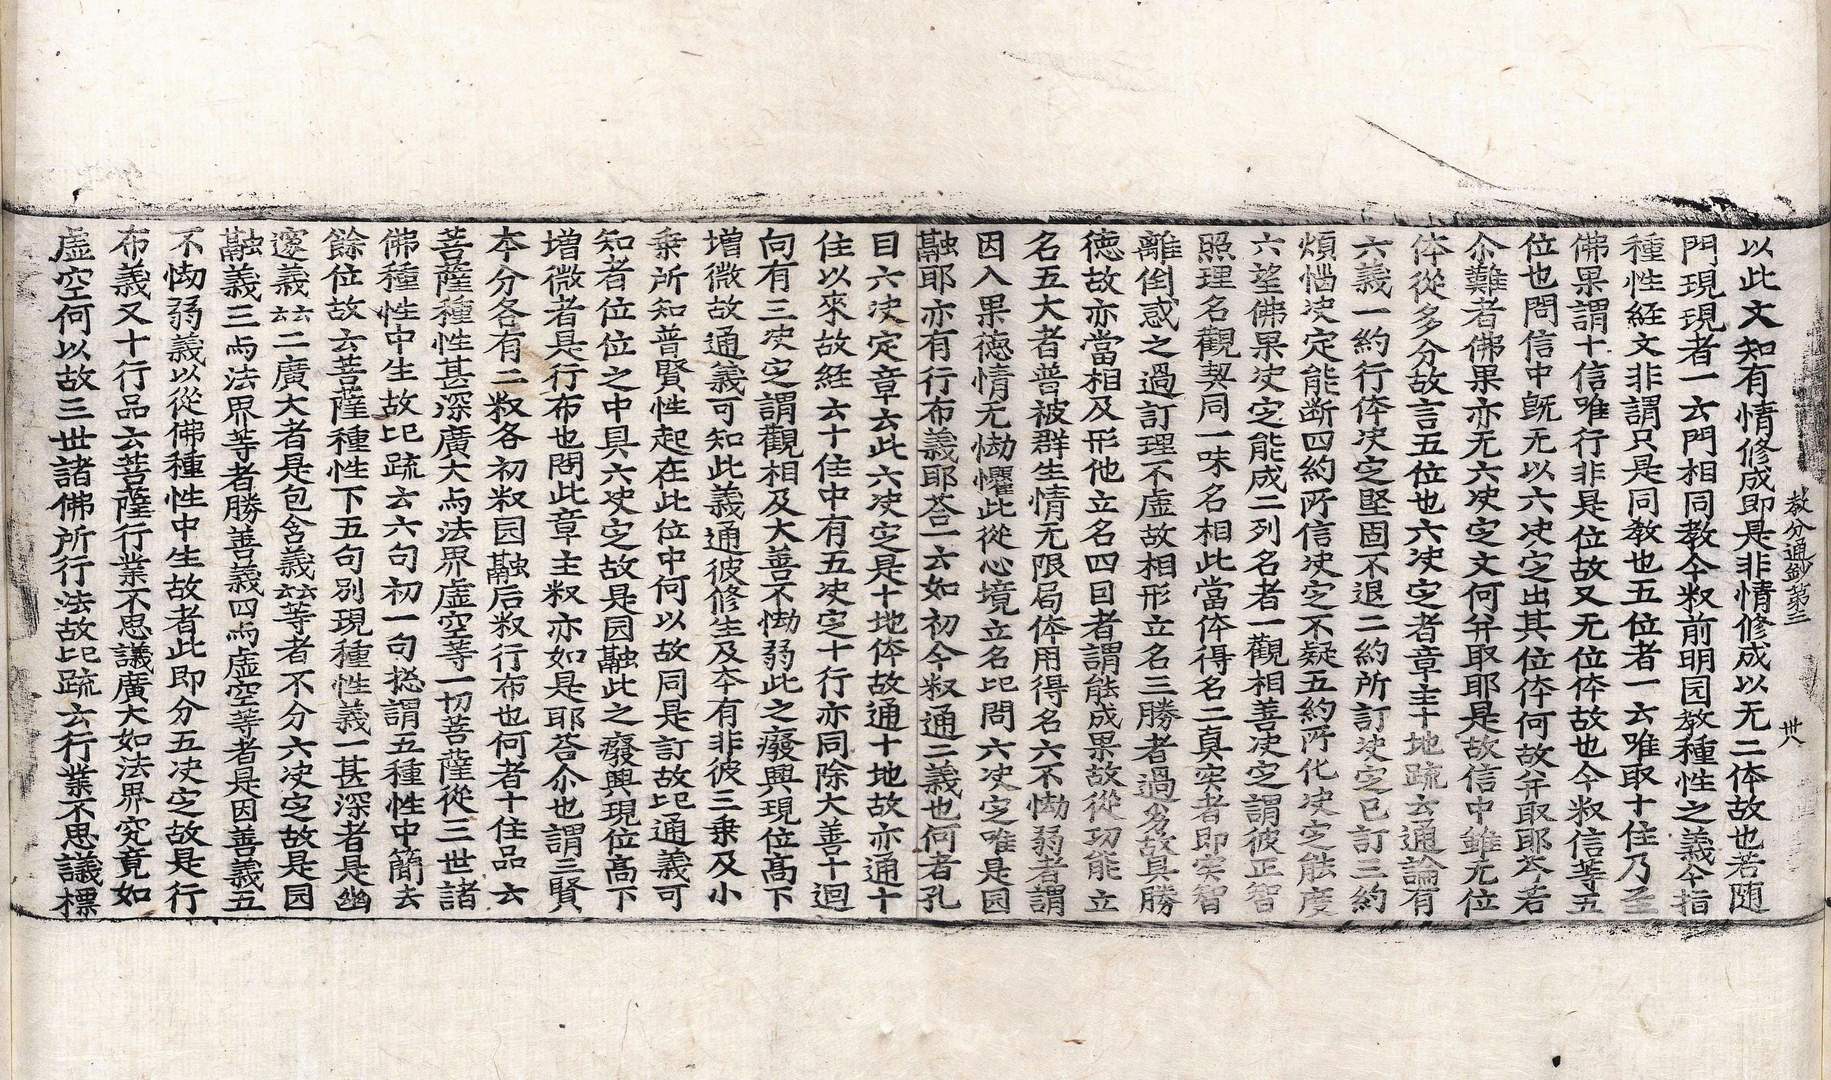 教分通鈔第三
卅八
以此文知有情修成即是非情修成以无二体故也若随
門現現者一云門相同教今㪽前明园教種性之義今指
種性経文非謂只是同教也五位者一云唯取十住乃至
佛果謂十信唯行非是位故又无位体故也今㪽信等五
位也問信中旣无以六决㝎出其位体何故并取耶荅若
尒難者佛果亦无六决㝎文何并取耶是故信中雖无位
体從多分故言五位也六决㝎者章主十地疏云通論有
六義一約行体决㝎堅固不退二約所訂决㝎已訂三約
煩惱决定能断四約所信决㝎不疑五約所化决㝎能度
六望佛果决㝎能成二列名者一觀相善决㝎謂彼正智
照理名觀契同一味名相此當体得名二真实者即实智
離倒惑之過訂理不虛故相形立名三勝者過劣故具勝
徳故亦當相及形他立名四因者謂能成果故從功能立
名五大者普被群生情无限局体用得名六不怮弱者謂
因入果徳情无怮懼此從心境立名此問六决㝎唯是园
融耶亦有行布義耶荅一云如初今㪽通二義也何者孔
目六决定章云此六决㝎是十地体故通十地故亦通十
住以來故経云十住中有五决㝎十行亦同除大善十迴
向有三决㝎謂觀相及大善不怮弱此之癈興現位高下
増微故通義可知此義通彼修生及夲有非彼三乗及小
乗所知普賢性起在此位中何以故同是訂故此通義可
知者位位之中具六决㝎故是园融此之癈興現位高下
増微者是行布也問此章主㪽亦如是耶荅尒也謂三賢
夲分各有二㪽各初㪽园融后㪽行布也何者十住品云
菩薩種性甚深廣大与法界虛空等一切菩薩從三世諸
佛種性中生故此疏云六句初一句捴謂五種性中簡去
餘位故云菩薩種性下五句別現種性義一甚深者是幽
邃義云云二廣大者是包含義云云等者不分六决㝎故是园
融義三与法界等者勝善義四与虛空等者是因善義五
不怮弱義以從佛種性中生故者此即分五决㝎故是行
布義又十行品云菩薩行業不思議廣大如法界究竟如
虛空何以故三世諸佛所行法故此疏云行業不思議標